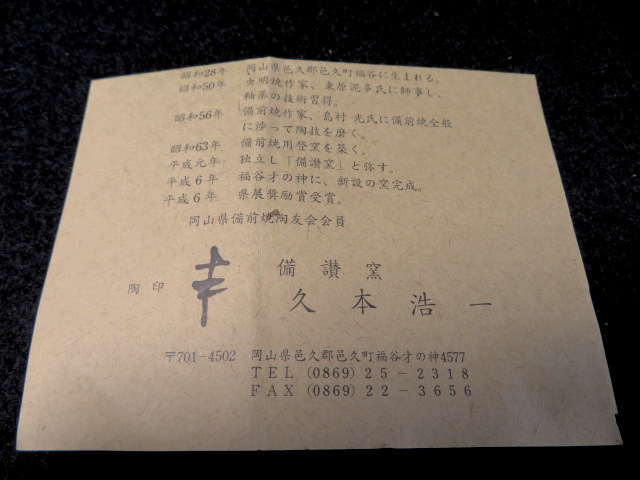 昭和28年 岡山県邑久郡邑久町福谷に生まれる。
昭和50年 虫明焼作家、東原泥多氏に師事し、
釉薬の技術習得。
昭和56年 備前焼作家、島村 光氏に備前焼全般
に渉って陶技を磨く。
昭和63年 備前焼用登窯を築く。
平成元年 独立し「備讃窯」と弥す。
平成6年 福谷才の神に、新設の窯完成。
平成6年 県展奨励賞受賞。
岡山県備前焼陶友会会員
備讃窯
陶印 久本浩一
〒701-4502 岡山県邑久郡邑久町福谷才の神4577
TEL (0869) 25-2318
FAX (0869) 22-3656